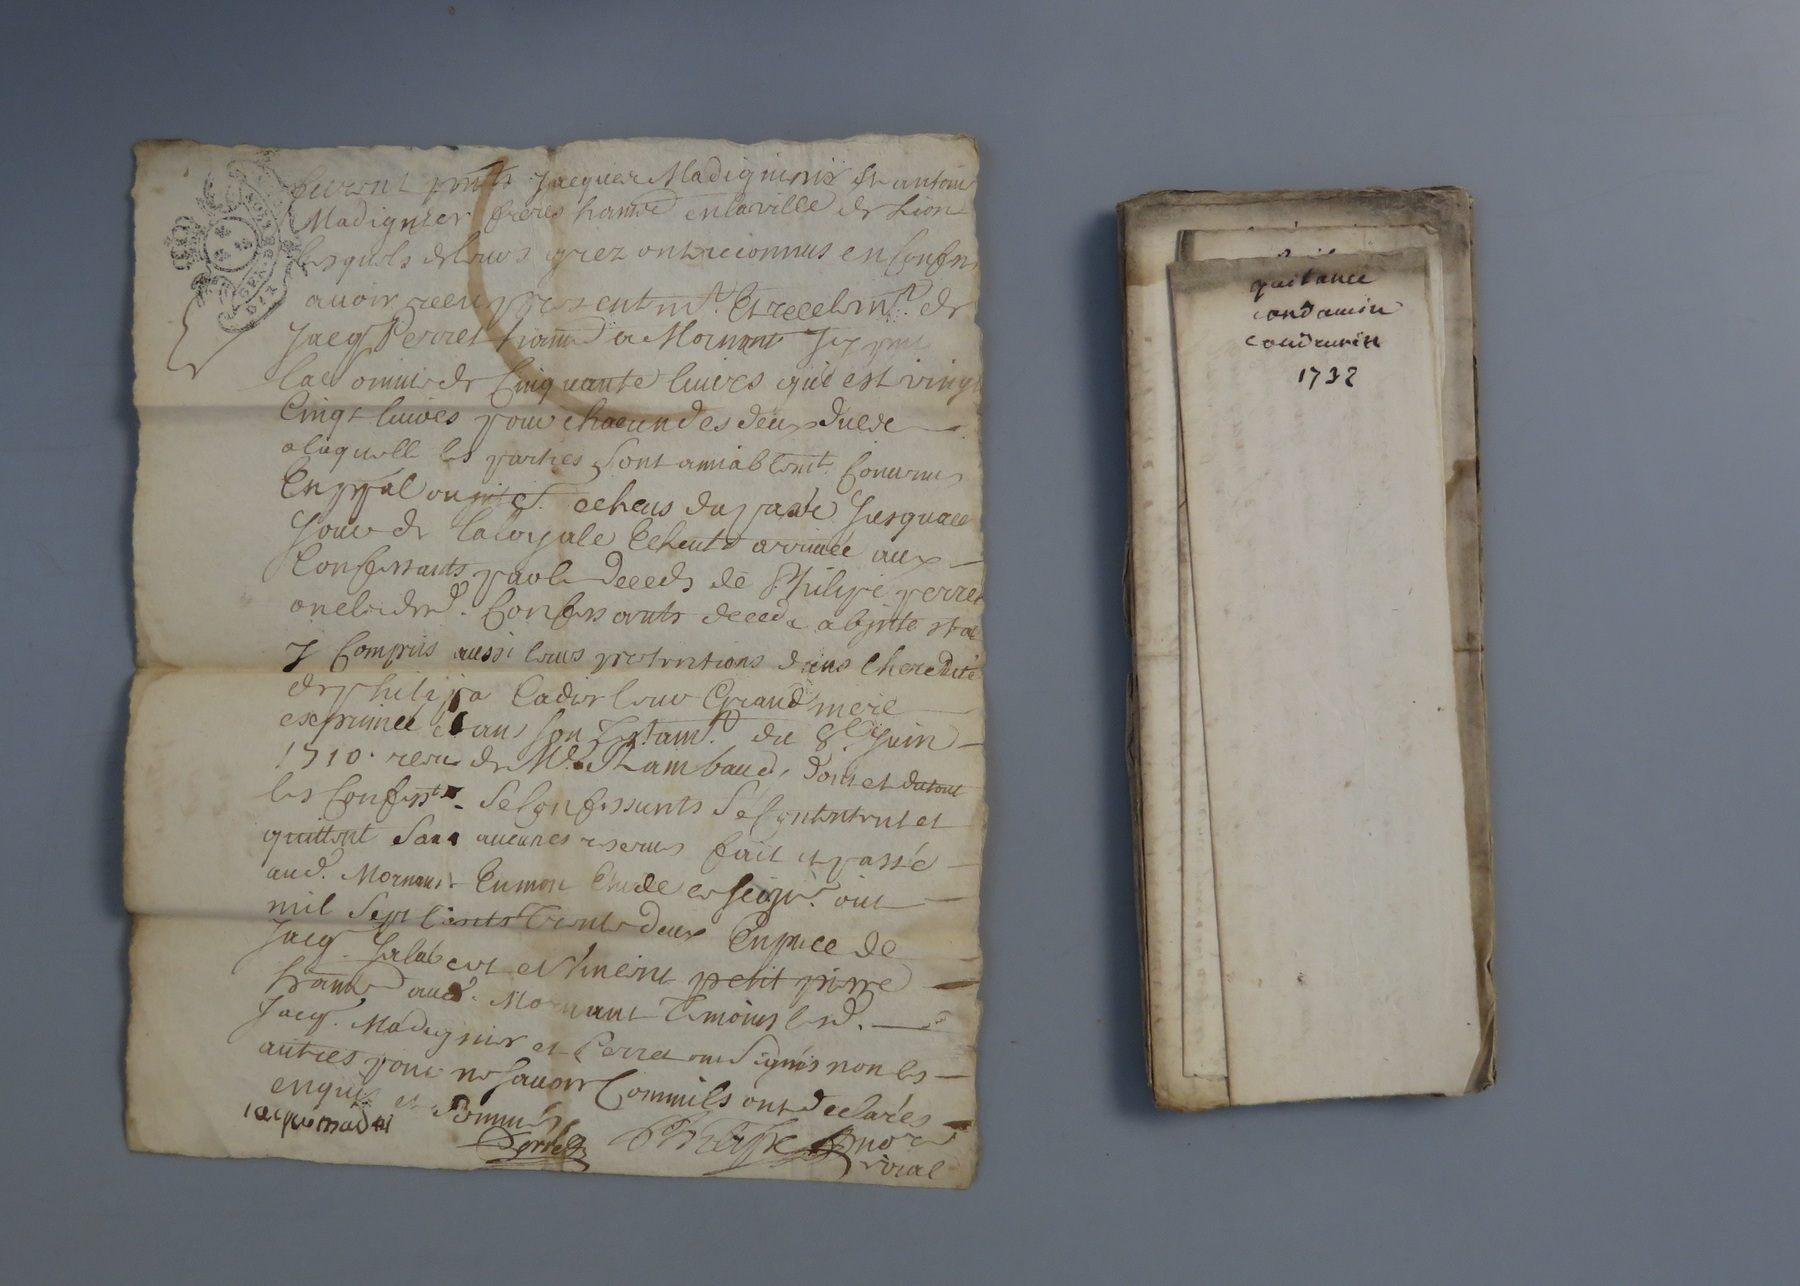 furent pnts Jacques Madignier et antoine
Madignier freres hants en la ville de Lion
lesquels de leurs grez ont reconnus en Confess
avoir receu presentmt. Et reelemt. de
Jacq Perret hant a Mornant
la somme de Cinquante livres qui est vingt
Cinq livres pour chacun des deux
a laquelle les parties sont amiablemt. Convenus
En ppal echeus du passé Jusqua ce
Jour de la loyale Echeute arrivée aux
Confessants par le deceds de Philipe perret
oncle desd. Confessants decedé abjntestat
y Compris aussi leurs pretentions dans Lheredité
de philipa Cadier leur Grand mere
exprimée dans son Testamt. du 8e. Juin
1710. receu de Me. Rambaud, dont et du tout
les Confessts. se Confessants se Contentent et
quittent sans aucunes reserves fait et passé
aud. Mornant En mon Etude
mil Sept Cents Trente deux En pnce de
Jacq. Jalabert et Vincent petit pierre
hants aud. Mornant Temoins lesd.
Jacq. Madignier et Perret ont Signés non les
autres pour ne sçavoir Comm'ils ont declarés
enquis et Sommés
jacque madi
Perret
roial
quitance
condamin
1732